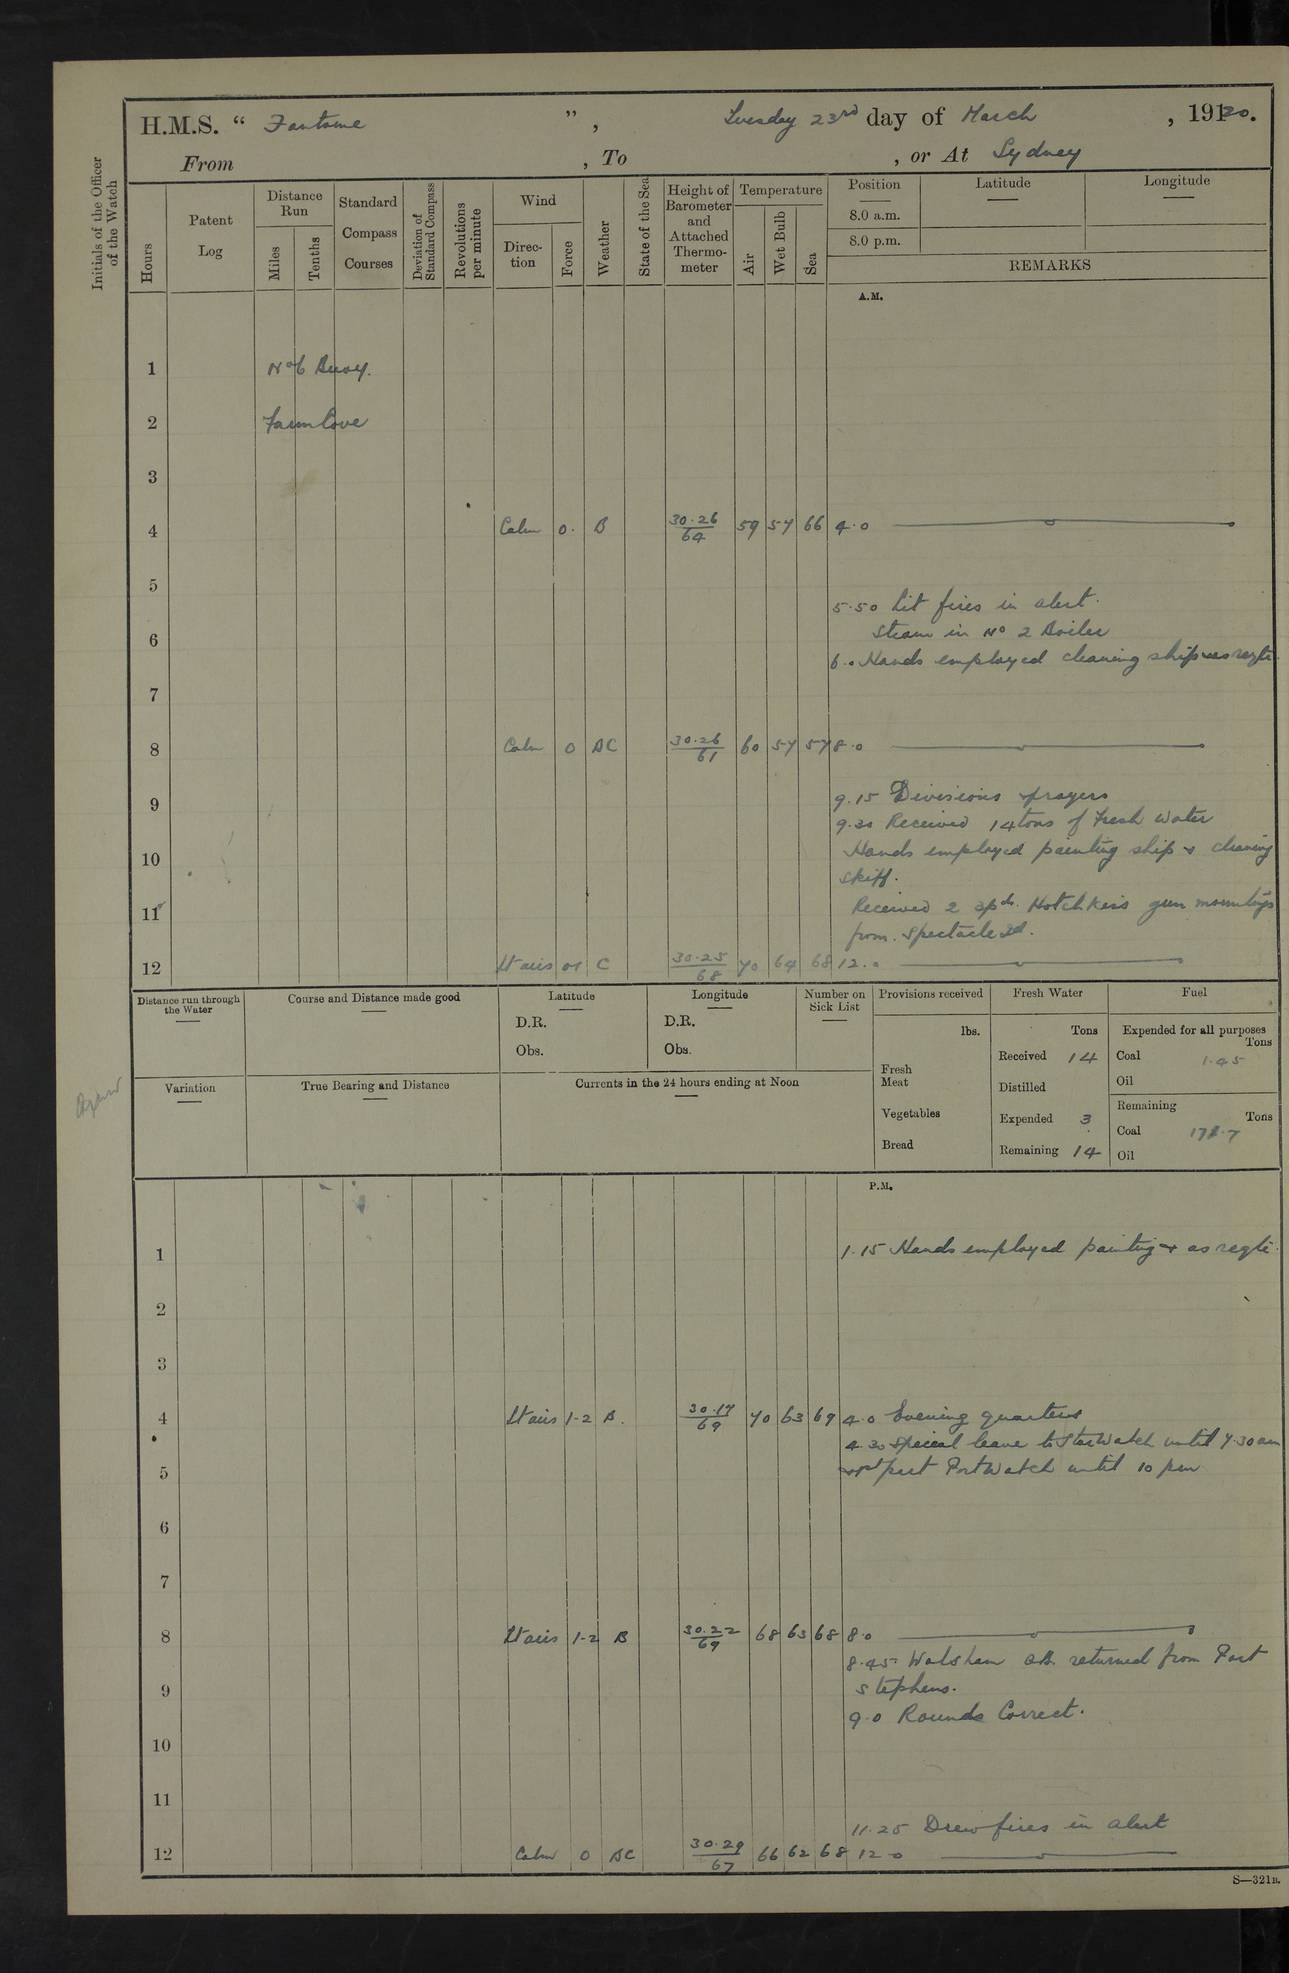 H.M.S. “ Fantome ”, Tuesday 23rd day of March, 19120.
From , To , or At Sydney
Initials of the Officer of the Watch
Hours
Patent Log
Distance Run
Miles
Tenths
Standard Compass Courses
Deviation of Standard Compass
Revolutions per minute
Wind
Direc-tion
Force
Weather
State of the Sea
Height of Barometer and Attached Thermo-meter
Temperature
Air
Wet Bulb
Sea
Position
8.0 a.m.
8.0 p.m.
Latitude
Longitude
REMARKS
A.M.
1 No 6 Buoy.
2 Farm Cove
3
4 Calm 0. B 30.26/64 59 57 66 4.0
5
5.50 Lit fires in alert.
6 Steam in No 2 Boiler
6.0 Hands employed cleaning ship as reqte.
7
8 Calm 0 BC 30.26/61 60 57 57 8.0
9 9.15 Divisions & prayers
9.30 Received 14 tons of Fresh Water
10 Hands employed painting ship & cleaning
skiff.
11 Received 2 3pdr. Hotchkiss gun mountings
from Spectacle Id.
12 Lt airs 01 C 30.25/68 70 64 68 12.0
Distance run through the Water
Course and Distance made good
Latitude
D.R.
Obs.
Longitude
D.R.
Obs.
Number on Sick List
Provisions received
lbs.
Fresh Meat
Vegetables
Bread
Fresh Water
Tons
Received 14
Distilled
Expended 3
Remaining 14
Fuel
Expended for all purposes
Tons
Coal 1.45
Oil
Remaining
Tons
Coal 171.7
Oil
Variation
True Bearing and Distance
Currents in the 24 hours ending at Noon
P.M.
1 1.15 Hands employed painting & as reqte.
2
3
4 Lt airs 1-2 B. 30.17/69 70 63 69 4.0 Evening quarters
4.30 Special leave to Star Watch until 7.30 am
5 part Port Watch until 10 pm
6
7
8 Lt airs 1-2 B 30.22/69 68 63 68 8.0
8.45 Walsham AB. returned from Port
9 Stephens.
9.0 Rounds Correct.
10
11
11.25 Drew fires in alert
12 Calm 0 BC 30.29/67 66 62 68 12.0
S—321B.